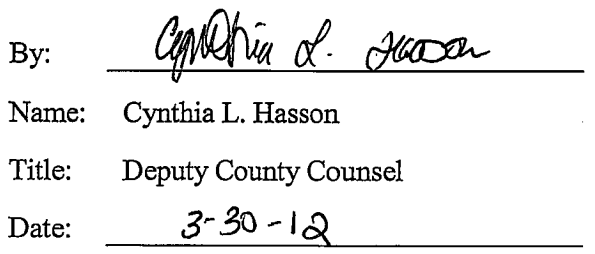 By: Cynthia L. Hasson
Name: Cynthia L. Hasson
Title: Deputy County Counsel
Date: 3-30-12